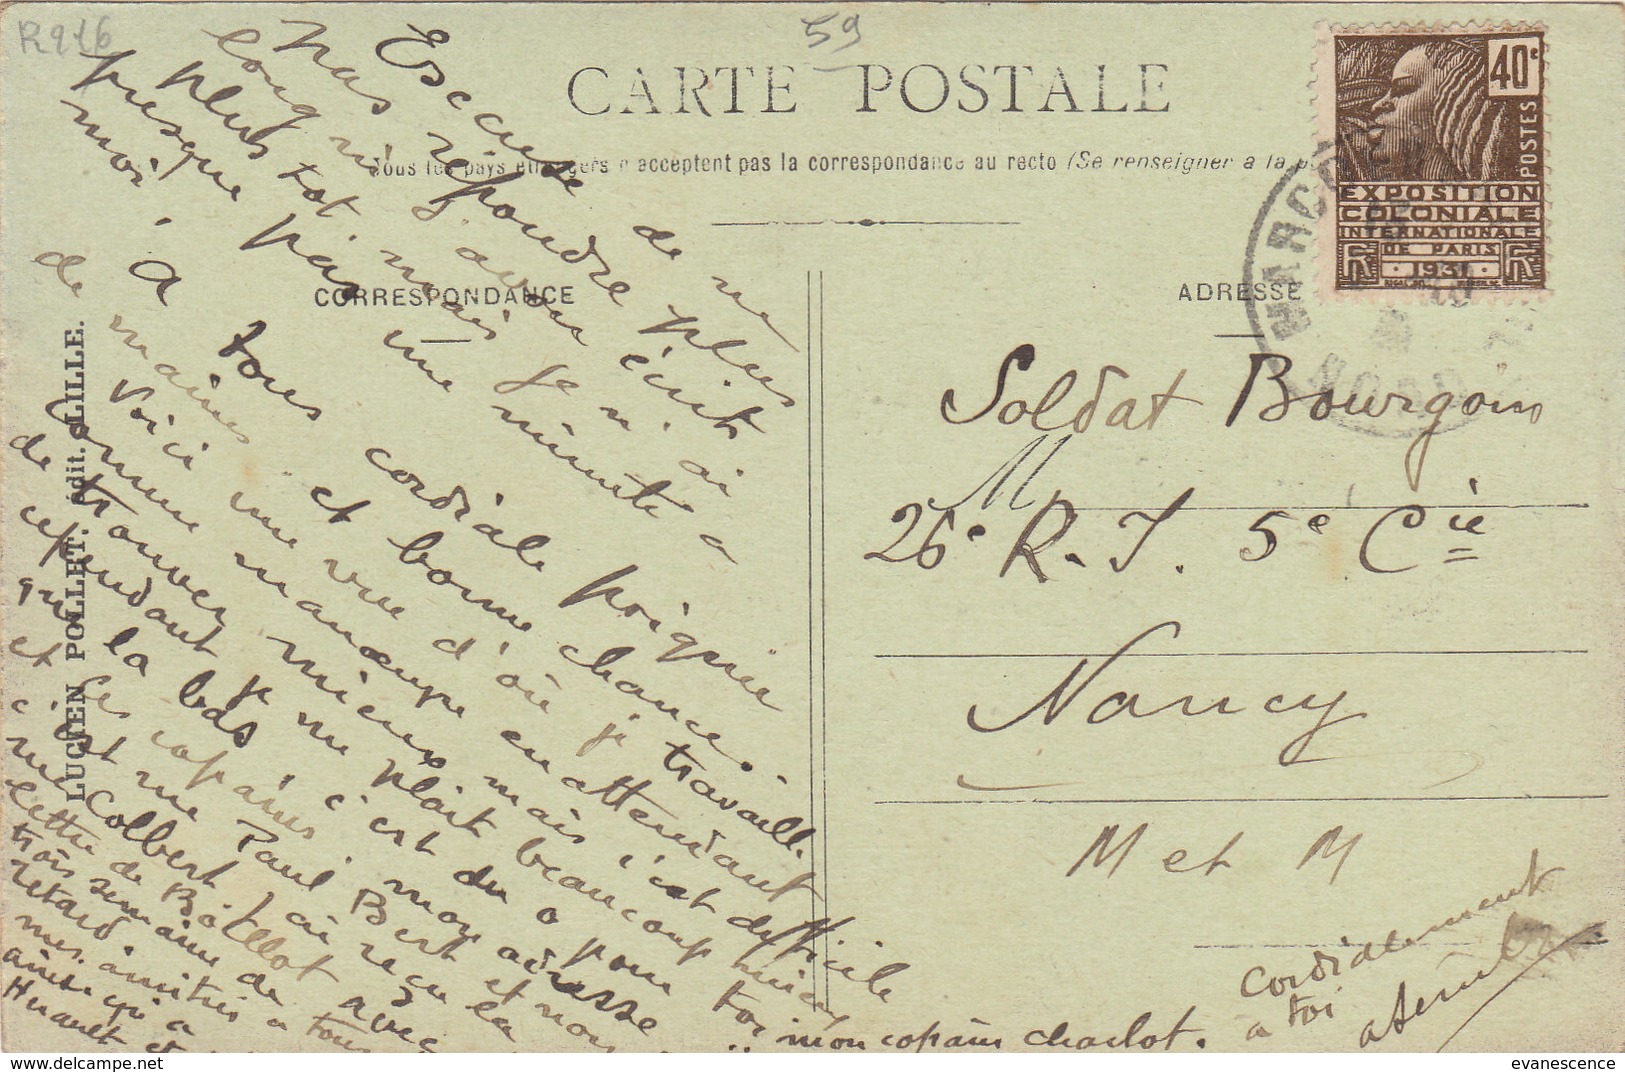 R916
59
CARTE POSTALE
Tous les pays étrangers n'acceptent pas la correspondance au recto (Se renseigner a la
CORRESPONDANCE
ADRESSE
40c
POSTES
EXPOSITION
COLONIALE
INTERNATIONALE
DE PARIS
1931
NORD
LUCIEN POLLET. édit. LILLE.
Escuse de ne
pas répondre plus
longri j'avai écrit
plus tot mais je n'ai
presque pas une minute a
moi.
a tous cordiale poignée
de mains et bonne chance.
Voici une vue d'où je travaille
comme manœupe en attendant
de trouver mieux mais c'est difficile
cependant je me plait beaucoup mieu
que la bas c'est du o pour toi
et les copains mon adresse
c'est rue Paul Bert et non
rue Colbert j'ai reçu la
lettre de avec
trois semaine de
retard.
mes amitiés a tous
ainsi qu'a
Huault et
mon copain charlot.
Soldat Bourgoin
26e R. I. 5e Cie
Nancy
M et M
cordialement
a toi